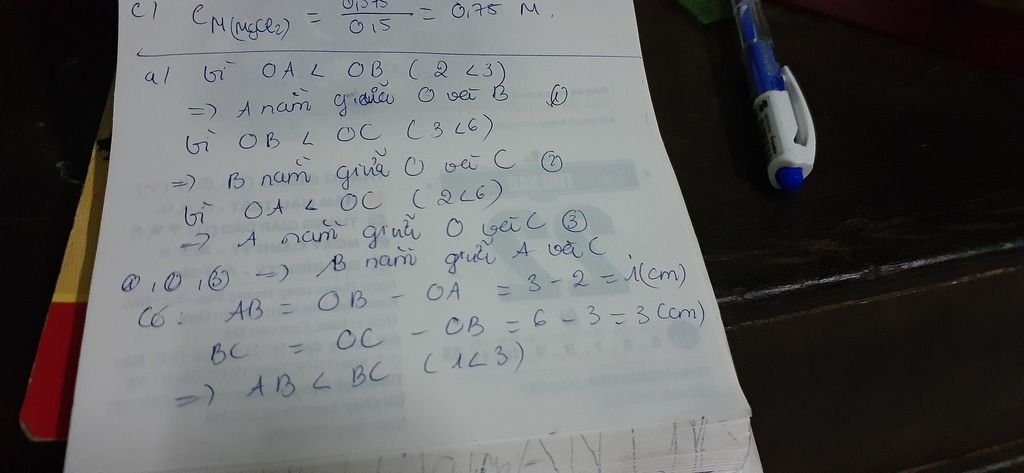 c) C M(MgCl2) = 0,1575 / 0,15 = 0,75 M.
a) Vì OA < OB ( 2 < 3)
=> A nằm giữa O và B ①
Vì OB < OC ( 3 < 6)
=> B nằm giữa O và C ②
Vì OA < OC ( 2 < 6)
=> A nằm giữa O và C ③
①, ②, ③ => B nằm giữa A và C
Có: AB = OB - OA = 3 - 2 = 1(cm)
BC = OC - OB = 6 - 3 = 3 (cm)
=> AB < BC ( 1 < 3)